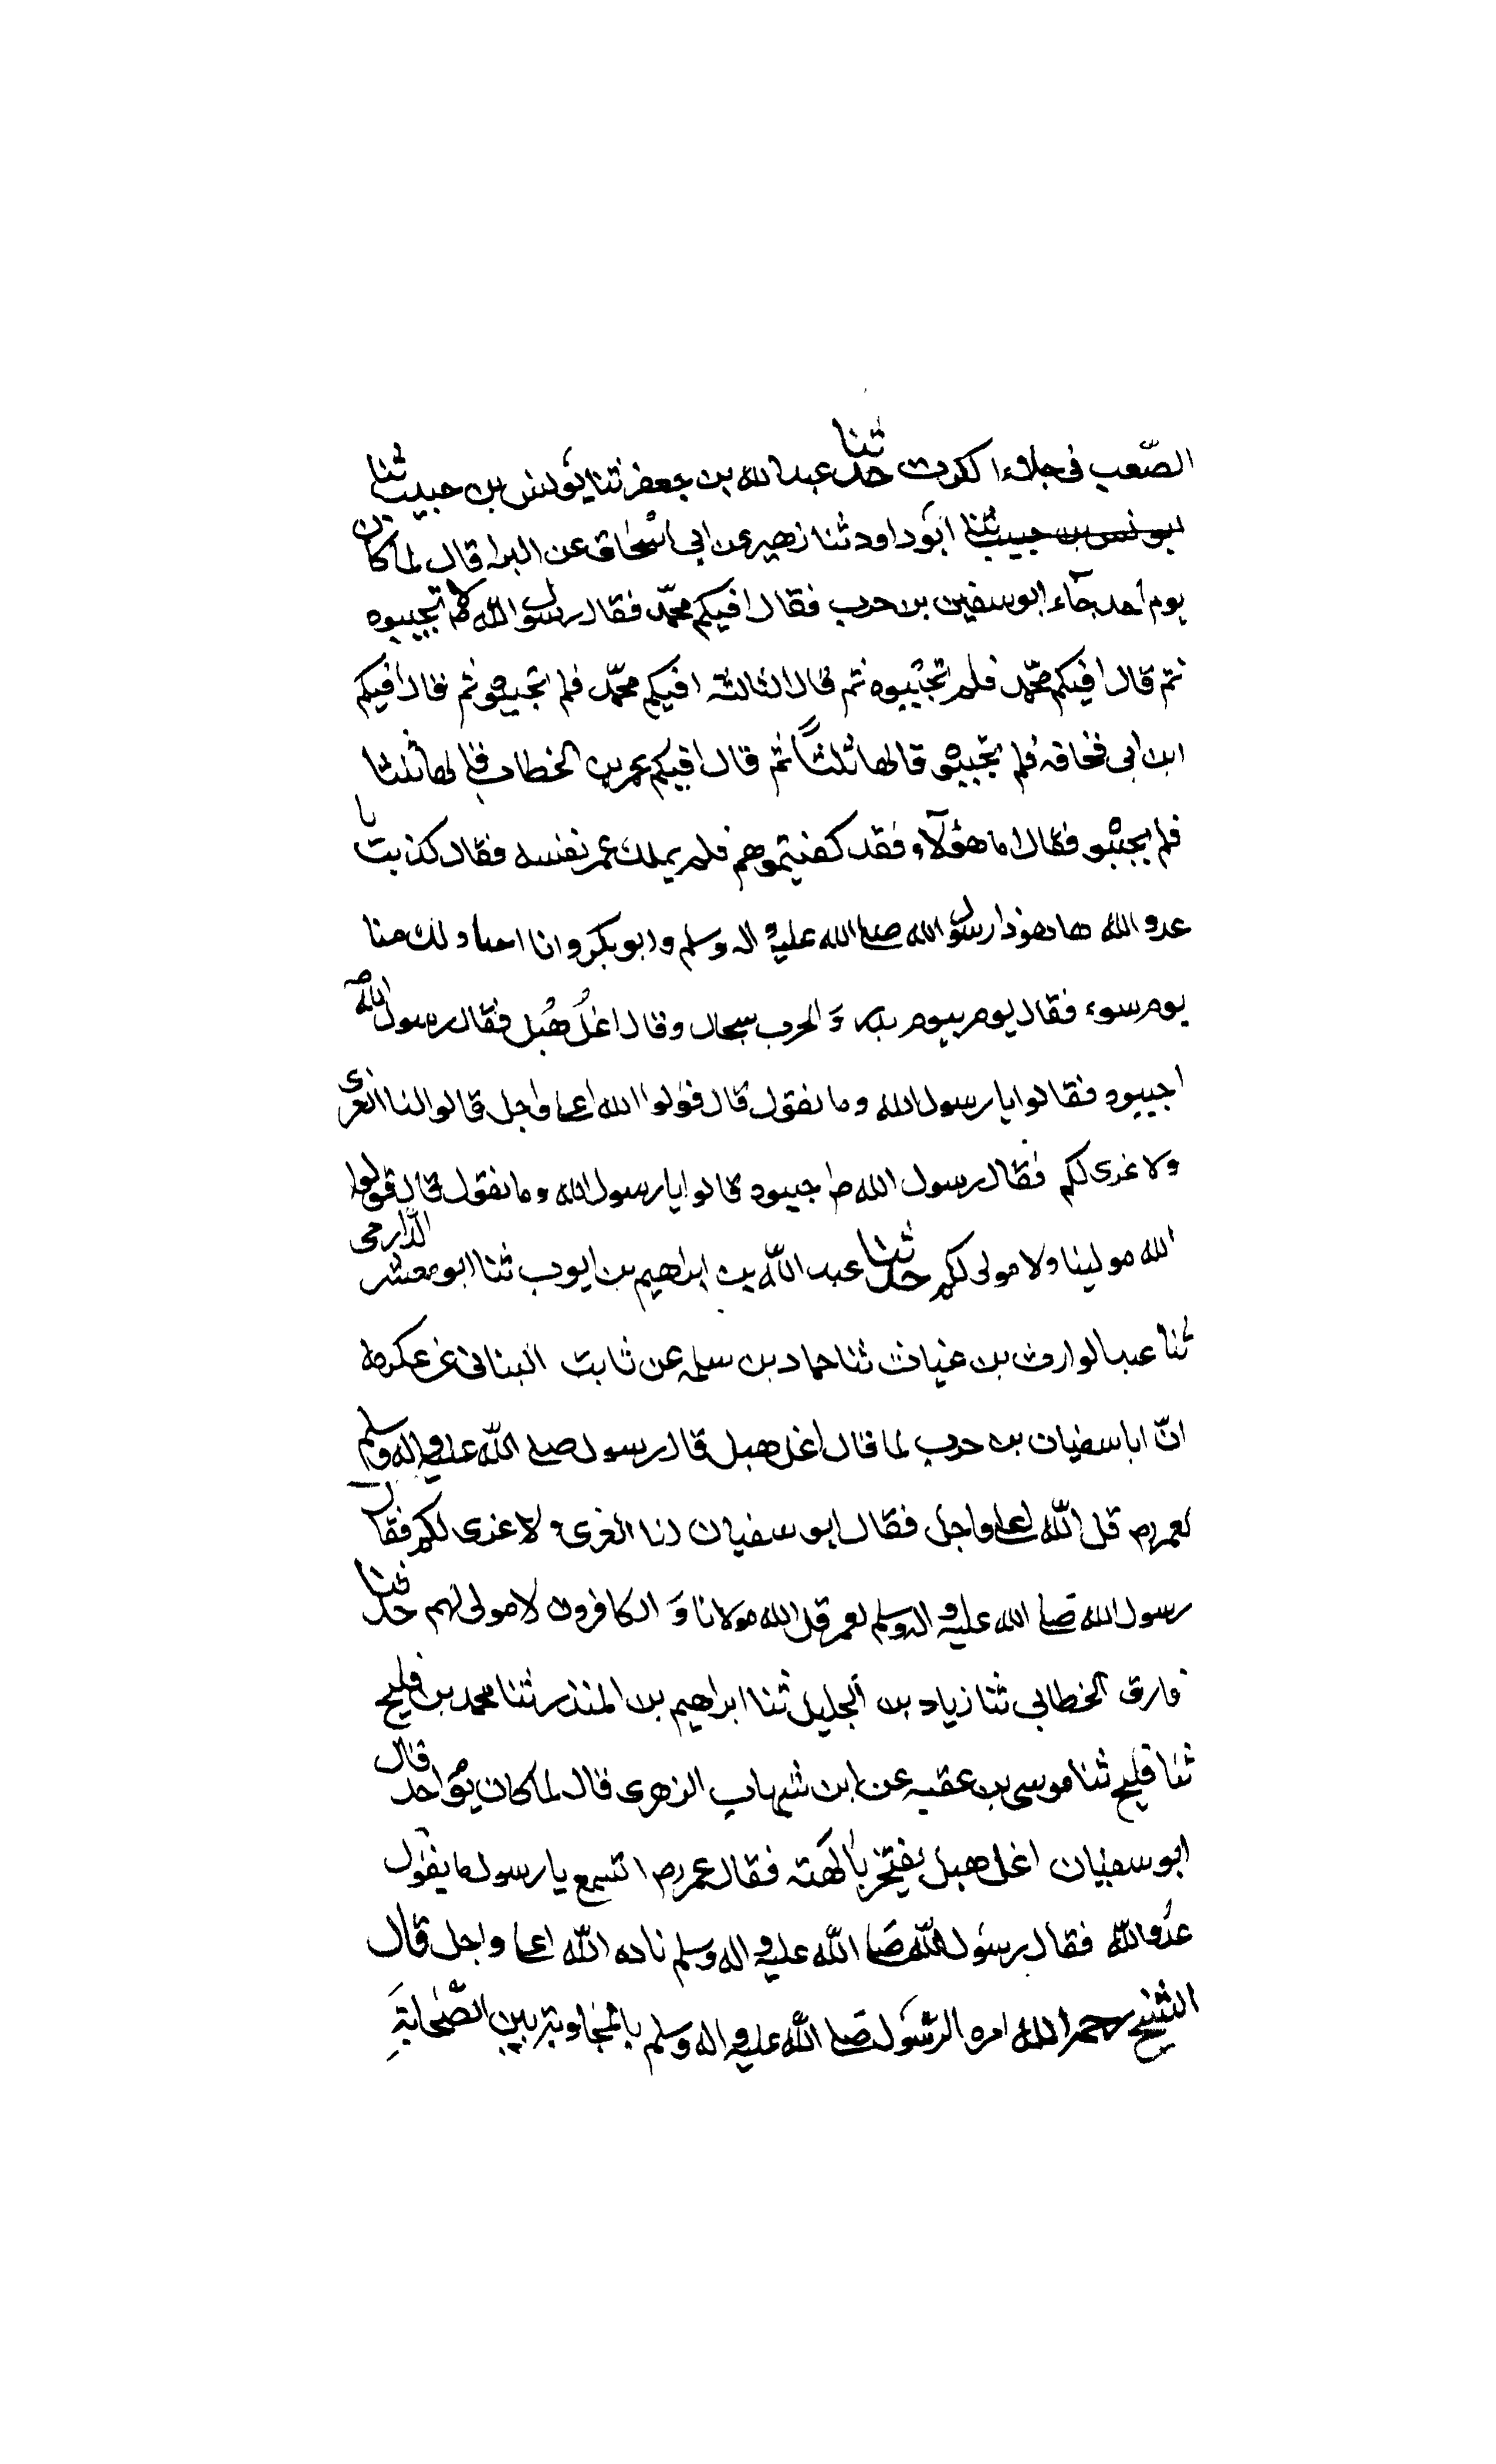 الصّعب فى جلاء الكرب حدثنا عبد الله بن جعفر ثنا يونس بن حبيب ثنا
يونس بن حبيب ثنا ابو داود ثنا زهير عن ابى اسحاق عن البرا قال لما كان
يوم احد جآء ابو سفين بن حرب فقال افيكم محمّد فقال رسول الله صلا تجيبوه
ثم قال افيكم محمّد فلم تجيبوه ثم قال الثالثه افيكم محمّد فلم تجيبوه ثم قال افيكم
ابن ابى قحافه فلم تجيبوه قالها ثلثاً ثم قال افيكم عمر بن الخطاب قالها ثلثا
فلم يجيبوه فقال اما هؤلآء فقد كفيتموهم فلم يملك عمر نفسه فقال كذبت يا
عدو الله ها هوذا رسول الله صلى الله عليه واله وسلم وابو بكر وانا احيا ولك منا
يوم سوء فقال يوم بيوم بدر وَ الحرب سجال وقال اعلُ هُبل فقال رسول الله ص
اجيبوه فقالوا يا رسول الله وما نقول قال قولوا الله اعلى واجل قالوا لنا العزى
ولا عزى لكم فقال رسول الله ص اجيبوه قالوا يا رسول الله وما نقول قال قولوا
الله مولينا ولا مولى لكم حدثنا عبد الله بن ابراهيم بن ايوب ثنا ابو معشر الدّارمى
ثنا عبد الوارث بن غياث ثنا حماد بن سلمه عن ثابت البنانى عن عكرمه
انّ ابا سفيان بن حرب لما قال اعل هبل قال رسول صلى الله عليه واله وسلم
لعمر رض قل الله اعلى واجل فقال ابو سفيان لنا العزى ولا عزى لكم فقال
رسول الله صلى الله عليه واله وسلم لعمر قل الله مولانا وَ الكافرون لا مولى لهم حدثنا
فارق الخطابى ثنا زياد بن الجليل ثنا ابراهيم بن المنذر ثنا محمد بن فليح
ثنا فليح ثنا موسى بن عقبه عن ابن شهاب الزهرى قال لما كان يوم احد قال
ابو سفيان اعل هبل يفتخر بآلهته فقال عمر رض اتسمع يا رسول ما يقول
عدو الله فقال رسول الله صلى الله عليه واله وسلم ناده الله اعلى واجل قال
الشيخ رحمه الله امره الرّسول صلى الله عليه واله وسلم بالمجاوبة بين الصّحابَةِ